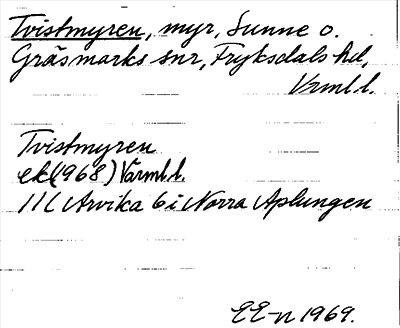 Tvistmyren, myr, Sunne o.
Gräsmarks snr, Fryksdals hd,
Vrml.l.
Tvistmyren
ek(1968) Värml.l.
11C Arvika 6 i Norra Aplungen
EE-n 1969.